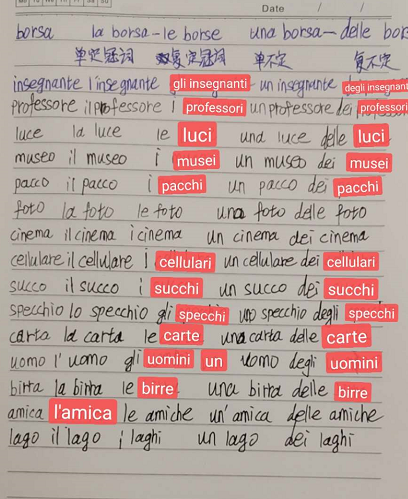 Date / /
borsa la borsa - le borse una borsa - delle bor
单定冠词 复定冠词 单不定 复不定
insegnante l'insegnante gli insegnanti - un insegnante degli insegnanti
professore il professore i professori un professore dei professori
luce la luce le luci una luce delle luci
museo il museo i musei un museo dei musei
pacco il pacco i pacchi un pacco dei pacchi
foto la foto le foto una foto delle foto
cinema il cinema i cinema un cinema dei cinema
cellulare il cellulare i cellulari un cellulare dei cellulari
succo il succo i succhi un succo dei succhi
specchio lo specchio gli specchi uno specchio degli specchi
carta la carta le carte una carta delle carte
uomo l'uomo gli uomini un uomo degli uomini
birra la birra le birre una birra delle birre
amica l'amica le amiche un'amica delle amiche
lago il lago i laghi un lago dei laghi